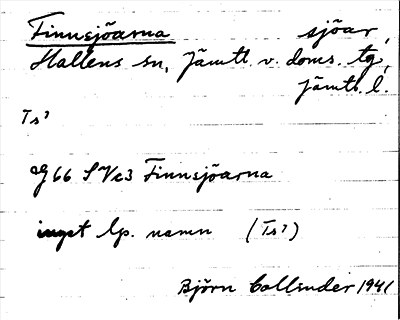 Finnsjöarna sjöar,
Hallens sn, Jämtl. v. doms. tg,
Jämtl. l.
Ts?
G66 SVc3 Finnsjöarna
inget lp. namn (Ts?)
Björn Collinder 1941